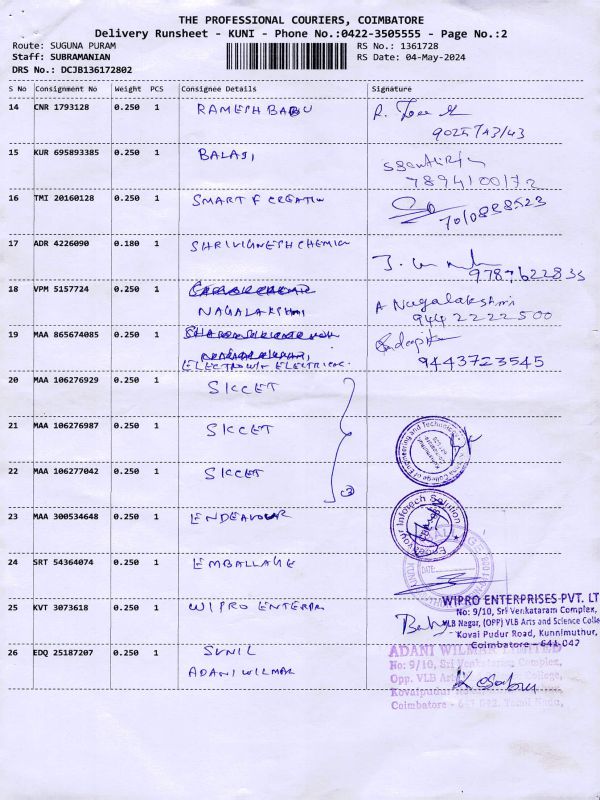 THE PROFESSIONAL COURIERS, COIMBATORE
Delivery Runsheet - KUNI - Phone No.:0422-3505555 - Page No.:2
Route: SUGUNA PURAM
RS No.: 1361728
Staff: SUBRAMANIAN
RS Date: 04-May-2024
DRS No.: DCJB136172802
S No Consignment No Weight PCS Consignee Details Signature
14 CNR 1793128 0.250 1 RAMESH BABU
15 KUR 695893385 0.250 1 BALAJI
7894100172
16 TMI 20160128 0.250 1 SMART F CREATIN
7010838523
17 ADR 4226090 0.180 1 SHRIVIGNESH CHEMICA
9787622835
18 VPM 5157724 0.250 1
NAGALAKSHMI
A Nagalakshmi
944 2222 500
19 MAA 865674085 0.250 1
ELECTROWT ELECTRICAL
9443723545
20 MAA 106276929 0.250 1 SKCET
21 MAA 106276987 0.250 1 SKCET
22 MAA 106277042 0.250 1 SKCET
23 MAA 300534648 0.250 1 ENDEAVOUR
Endeavour Infotech Solution
24 SRT 54364074 0.250 1 EMBALLAGE
DATE:
25 KVT 3073618 0.250 1 WIPRO ENTERPR
WIPRO ENTERPRISES PVT. LT
No: 9/10, Sri Venkataram Complex,
VLB Nagar, (OPP) VLB Arts and Science Colle
Kovai Pudur Road, Kunnimuthur,
Coimbatore - 641 042
26 EDQ 25187207 0.250 1 SUNIL
ADANI WILMAR
ADANI WILMAR LIMITED
No: 9/10, Sri Venkataram Complex,
Opp. VLB Arts College,
Kovaipudur
Coimbatore - 641 042. Tamil Nadu,